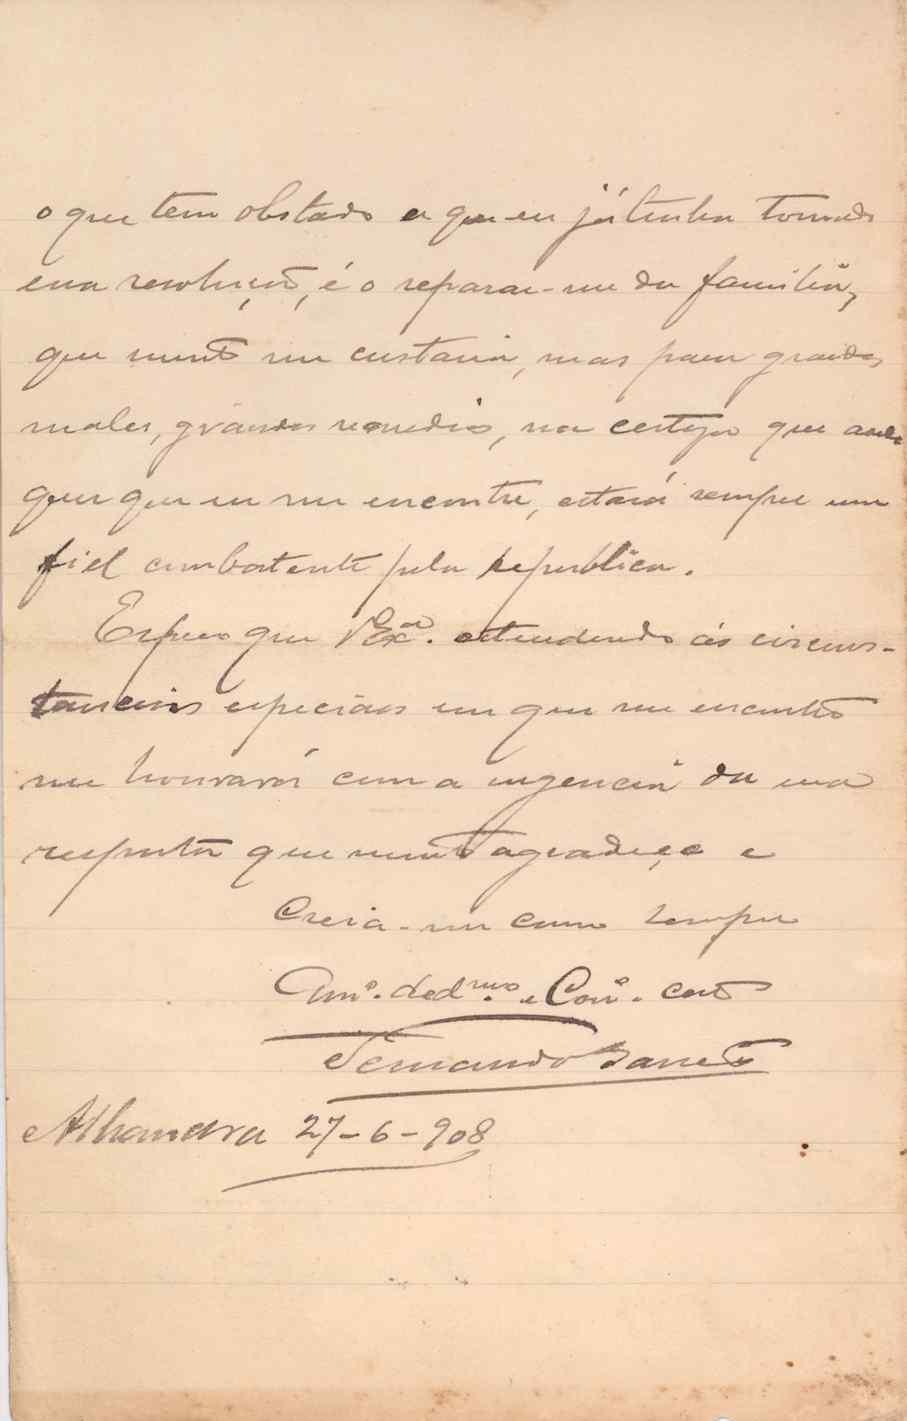 o que tem obstado a que eu já tenha tomado
essa resolução, é o separar-me da familia,
que muito me custaria, mas para grandes
males, grandes remedios, na certeza que onde
quer que eu me encontre, estará sempre um
fiel combatente pela republica.
Espero que V. Exª. attendendo ás circums-
tancias especiaes em que me encontro
me honrará com a urgencia da sua
resposta que muito agradeço e
Creia-me como sempre
Amº. dedmo. e Corrº. certo
Fernando Barreto
Alhandra 27-6-908